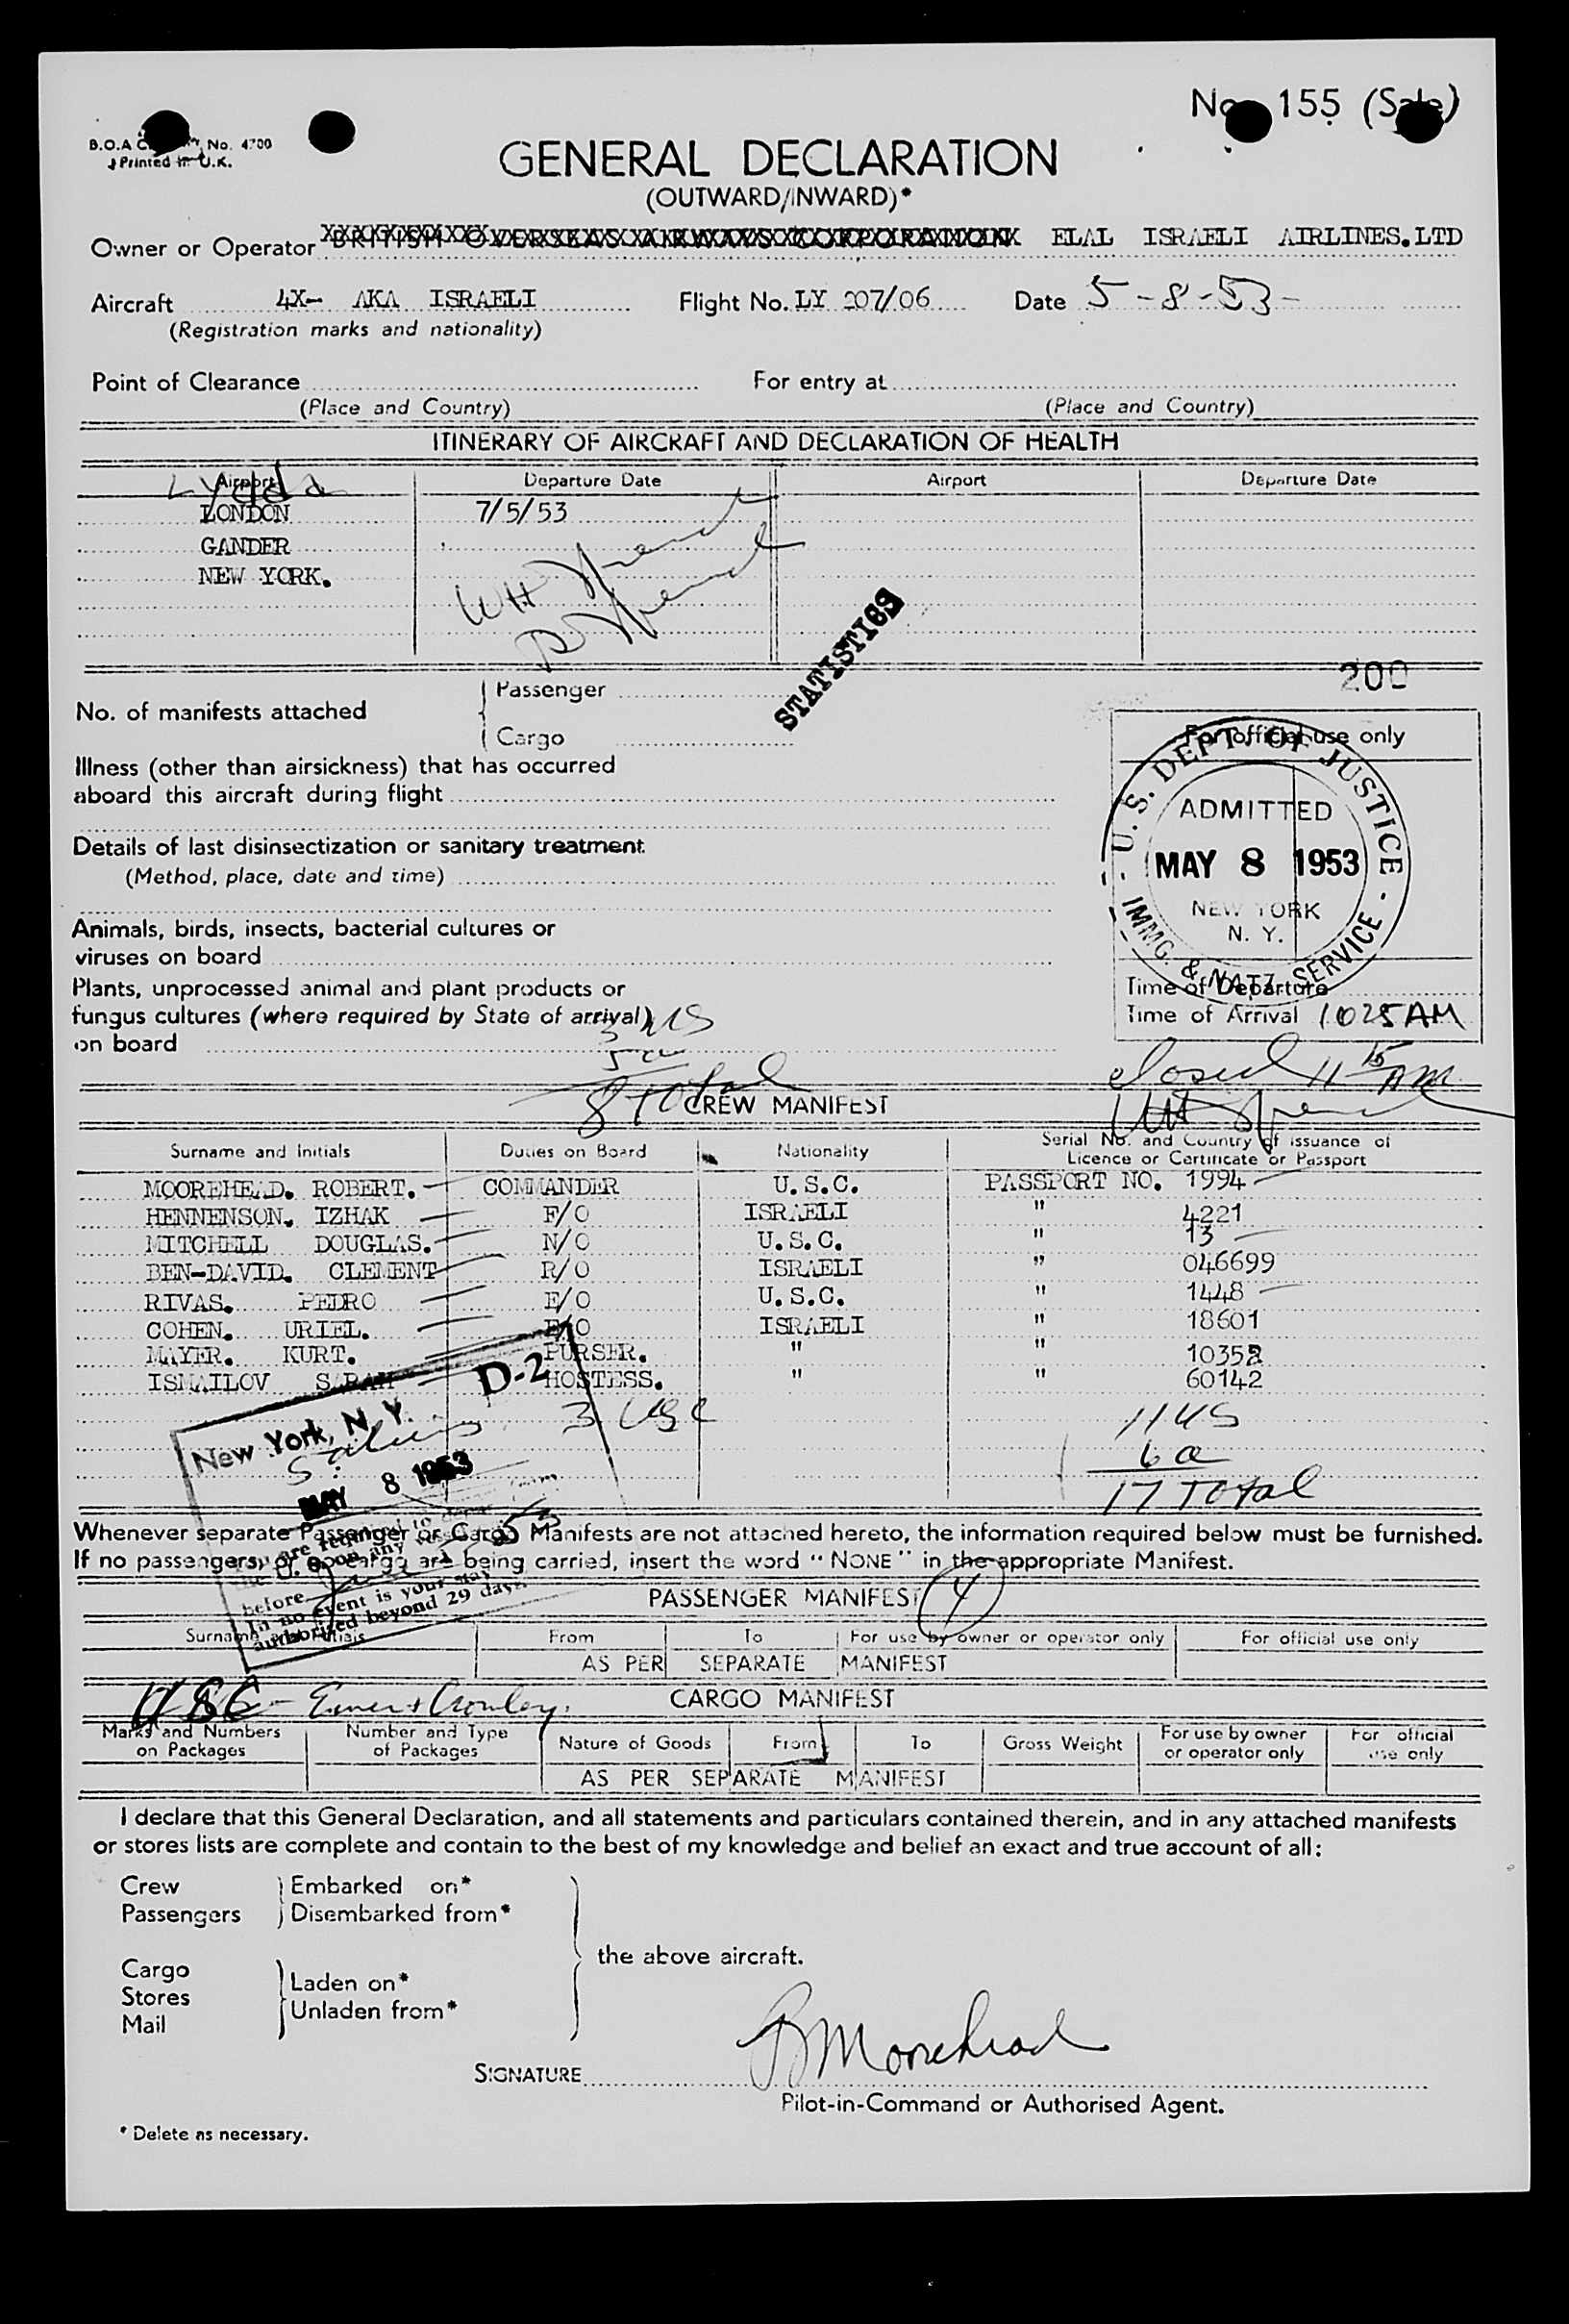 No. 155 (Sale)
B.O.A.C. No. 4700
Printed in U.K.
GENERAL DECLARATION
(OUTWARD/INWARD)*
Owner or Operator BRITISH OVERSEAS AIRWAYS CORPORATION ELAL ISRAELI AIRLINES.LTD
Aircraft 4X- AKA ISRAELI Flight No. LY 207/06 Date 5-8-53-
(Registration marks and nationality)
Point of Clearance For entry at
(Place and Country) (Place and Country)
ITINERARY OF AIRCRAFT AND DECLARATION OF HEALTH
Airport Departure Date Airport Departure Date
Lydda
LONDON 7/5/53
GANDER
NEW YORK.
STATISTICS
200
No. of manifests attached
Passenger
Cargo
For official use only
Illness (other than airsickness) that has occurred
aboard this aircraft during flight
Details of last disinsectization or sanitary treatment
(Method, place, date and time)
Animals, birds, insects, bacterial cultures or
viruses on board
Plants, unprocessed animal and plant products or
fungus cultures (where required by State of arrival)
on board
U.S. DEPT. OF JUSTICE
ADMITTED
MAY 8 1953
NEW YORK
N. Y.
IMMG. & NATZ. SERVICE
Time of Departure
Time of Arrival 1025 AM
closed 11 15 AM
3 US
5 a
8 Total
CREW MANIFEST
Surname and Initials Duties on Board Nationality Serial No. and Country of issuance of
Licence or Certificate or Passport
MOOREHEAD. ROBERT. COMMANDER U.S.C. PASSPORT NO. 1994
HENNENSON. IZHAK F/O ISRAELI " 4221
MITCHELL DOUGLAS. N/O U.S.C. " 13
BEN-DAVID. CLEMENT R/O ISRAELI " 046699
RIVAS. PEDRO E/O U.S.C. " 1448
COHEN. URIEL. E/O ISRAELI " 18601
MAYER. KURT. PURSER. " " 10352
ISMAILOV SARAH HOSTESS. " " 60142
D-2
3 USC
11 US
6 a
17 Total
New York, N. Y.
MAY 8 1953
before
In no event is your stay
authorised beyond 29 days.
Whenever separate Passenger or Cargo Manifests are not attached hereto, the information required below must be furnished.
If no passengers, or cargo are being carried, insert the word "NONE" in the appropriate Manifest.
PASSENGER MANIFEST (4)
Surname and Initials From To For use by owner or operator only For official use only
AS PER SEPARATE MANIFEST
USC - CARGO MANIFEST
Marks and Numbers
on Packages
Number and Type
of Packages
Nature of Goods From To Gross Weight
For use by owner
or operator only
For official
use only
AS PER SEPARATE MANIFEST
I declare that this General Declaration, and all statements and particulars contained therein, and in any attached manifests
or stores lists are complete and contain to the best of my knowledge and belief an exact and true account of all:
Crew Embarked on*
Passengers Disembarked from*
the above aircraft.
Cargo
Stores
Mail
Laden on*
Unladen from*
SIGNATURE R Moorehead
Pilot-in-Command or Authorised Agent.
* Delete as necessary.